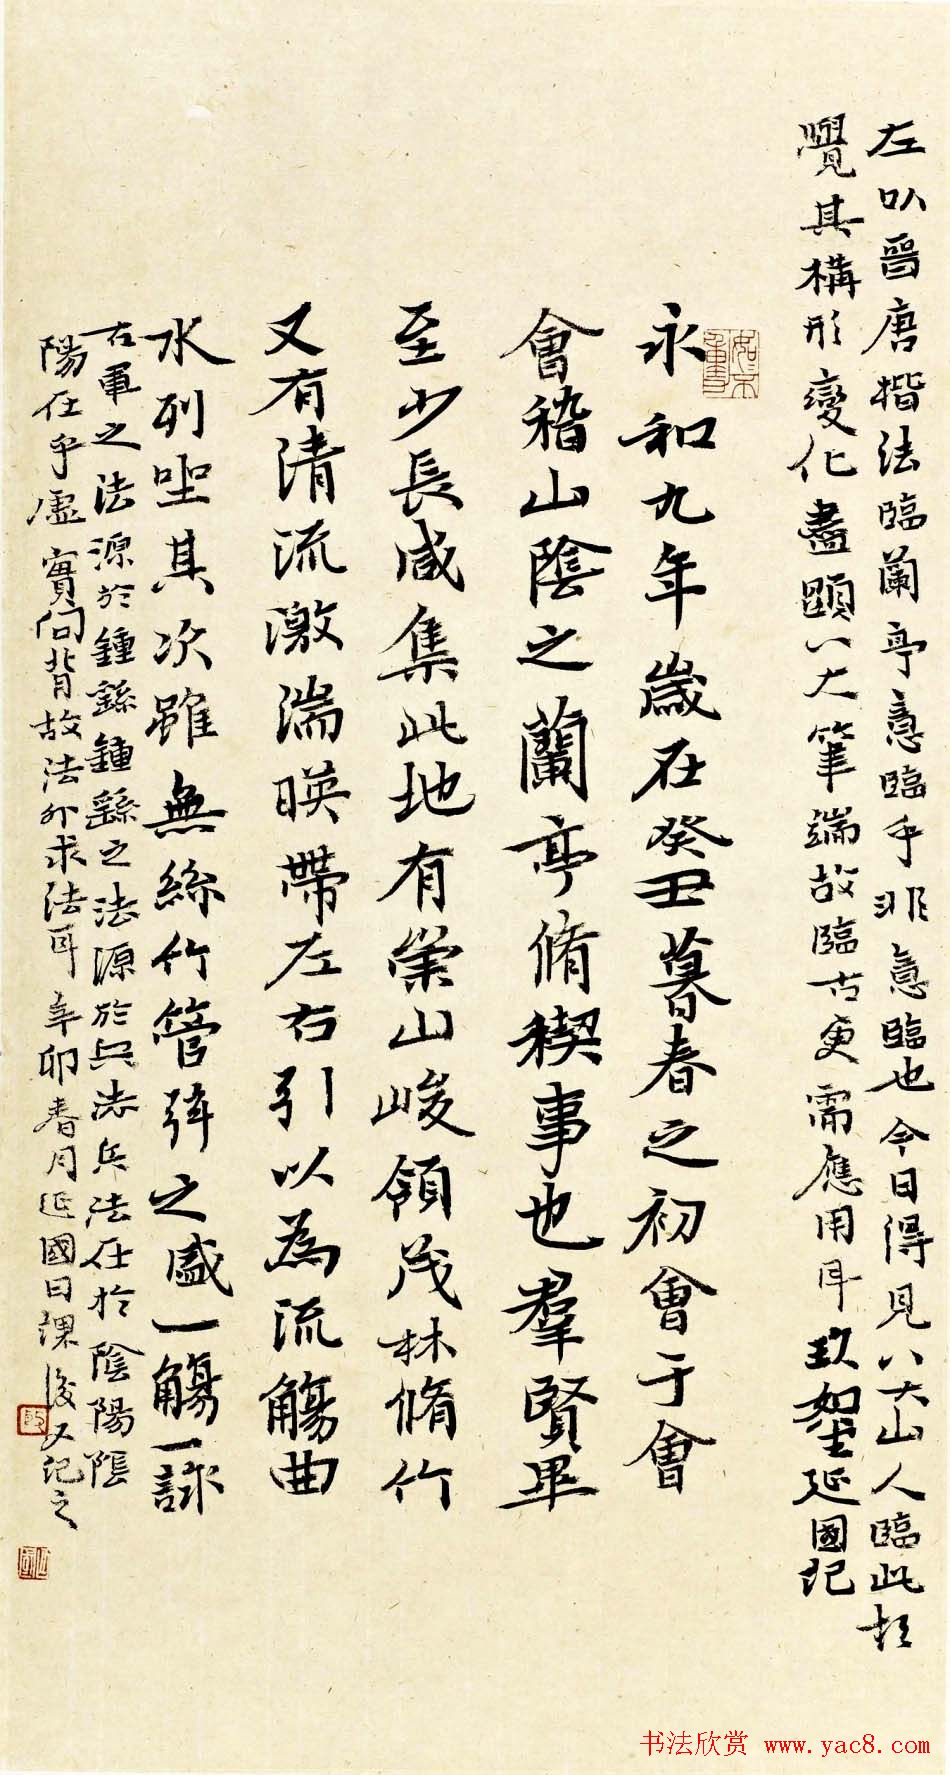 左以晉唐楷法臨蘭亭意臨乎非意臨也今日得見八大山人臨此
覺其構形變化盡顯八大筆端故臨古更需應用耳 延國記
永和九年歲在癸丑暮春之初會于會
會稽山陰之蘭亭脩稧事也羣賢畢
至少長咸集此地有崇山峻領茂林脩竹
又有清流激湍暎帶左右引以為流觴曲
水列坐其次雖無絲竹管弦之盛一觴一詠
右軍之法源於鍾繇鍾繇之法源於兵法兵法在於陰陽陰
陽在乎虛實向背故法外求法耳辛卯春月延國日課後又記之
书法欣赏 www.yac8.com